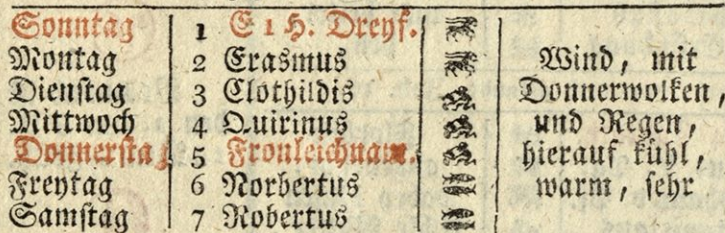 Sonntag 1 E 1 H. Dreyf.
Montag 2 Erasmus Wind, mit
Dienſtag 3 Clothildis Donnerwolken,
Mittwoch 4 Quirinus und Regen,
Donnerſtag 5 Fronleichnam. hierauf kühl,
Freytag 6 Norbertus warm, ſehr
Samſtag 7 Robertus